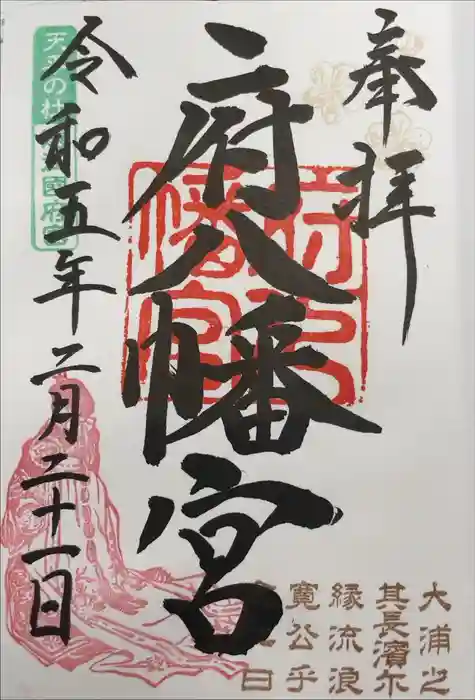 奉拝
府八幡宮
府八
幡宮
令和五年二月二十一日
天平の杜
大浦之
其長濱尓
縁流浪
寛公乎
日